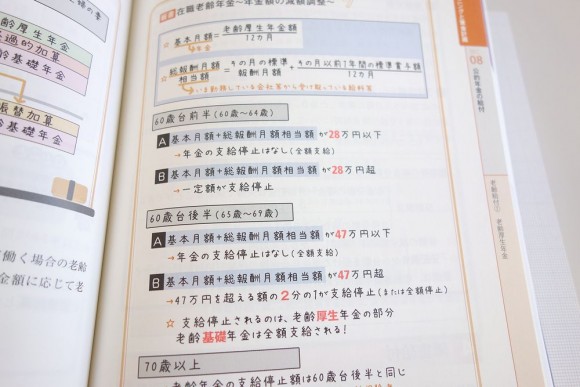 齢厚生年金
過的加算
齢基礎年金
振替加算
齢基礎年金
働く場合の老齢
金額に応じて老
在職老齢年金〜年金額の減額調整〜
☆基本月額=老齢厚生年金額
12カ月
年金
☆総報酬月額相当額=その月の標準報酬月額+その月以前1年間の標準賞与額
12カ月
60歳台前半(60歳〜64歳)
A 基本月額+総報酬月額相当額が28万円以下
→年金の支給停止はなし(全額支給)
B 基本月額+総報酬月額相当額が28万円超
→一定額が支給停止
60歳台後半(65歳〜69歳)
A 基本月額+総報酬月額相当額が47万円以下
→年金の支給停止はなし(全額支給)
B 基本月額+総報酬月額相当額が47万円超
→47万円を超える額の2分の1が支給停止(または全額停止)
☆ 支給停止されるのは、老齢厚生年金の部分
老齢基礎年金は全額支給される!
70歳以上
老齢年金の支給停止額は60歳台後半と同じ
08
公的年金の給付
老齢給付②
老齢厚生年金